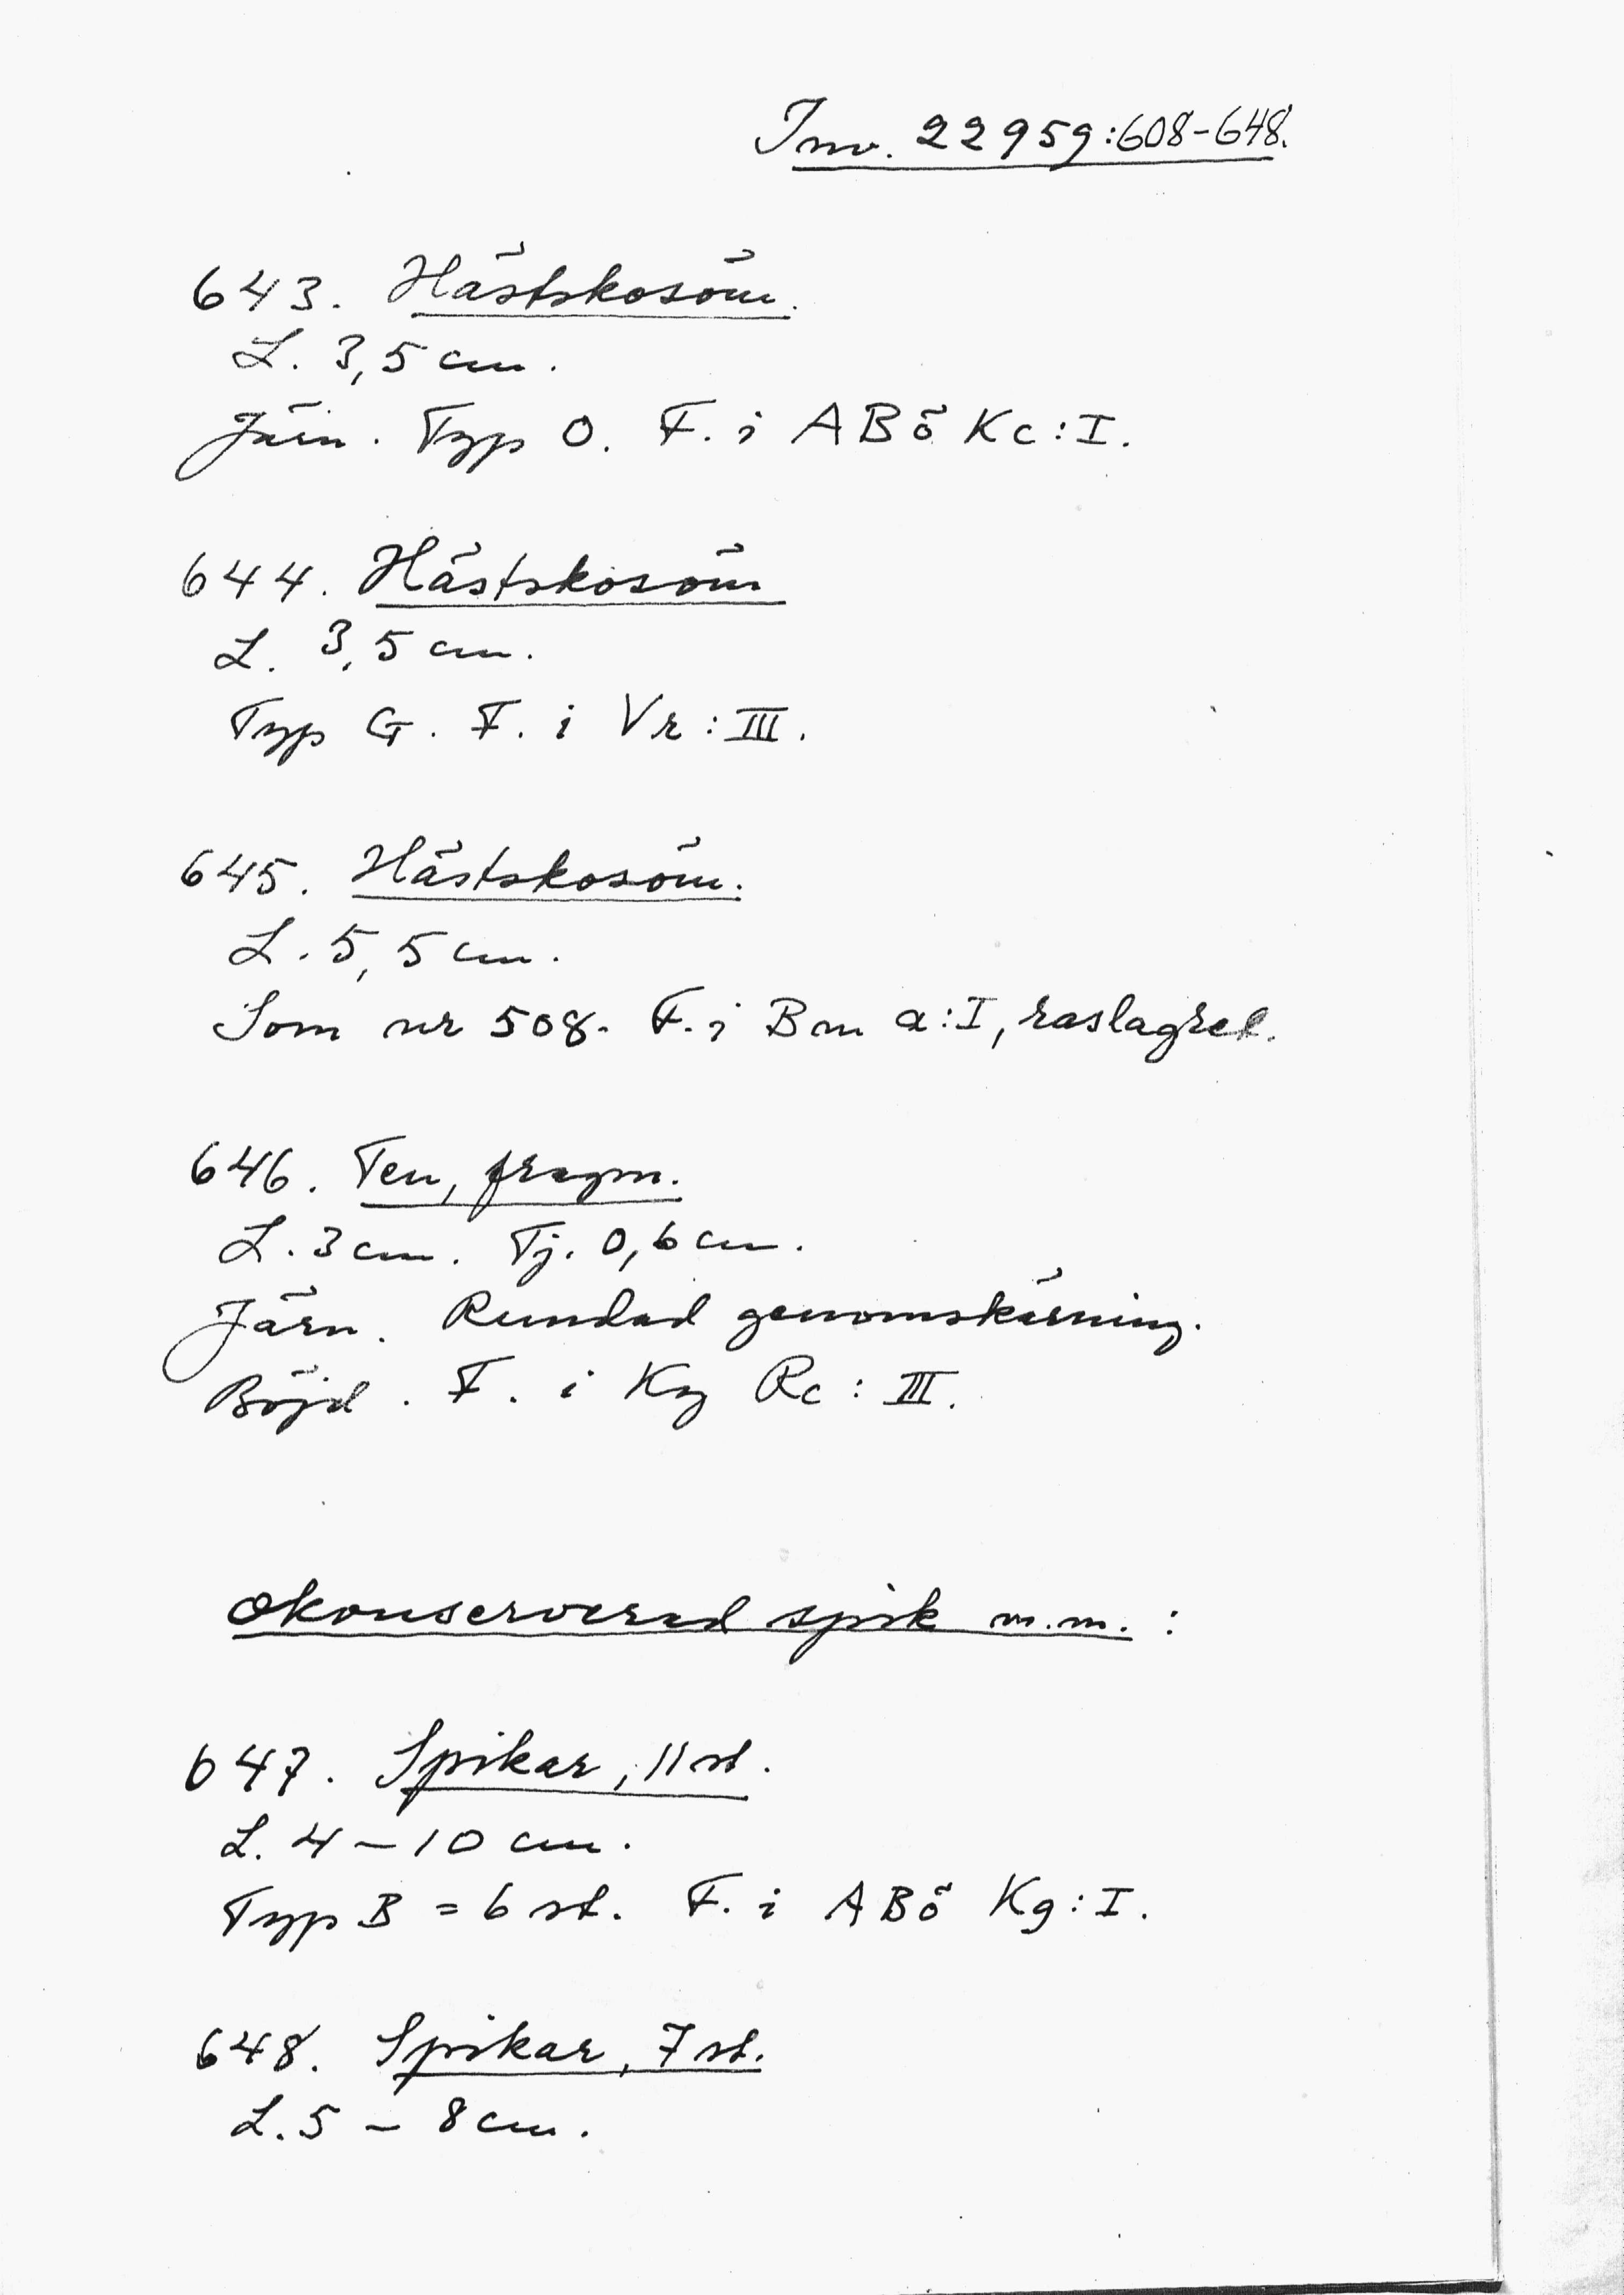 Inv. 22959:608-648.
643. Hästskosöm.
L. 3,5 cm.
Järn. Typ O. F. i ABö Kc:I.
644. Hästskosöm
L. 3,5 cm.
Typ G. F. i Vr:III.
645. Hästskosöm.
L. 5,5 cm.
Som nr 508. F. i Bm a:I, raslagret.
646. Ten, fragm.
L. 3 cm. Tj. 0,6 cm.
Järn. Rundad genomskärning.
Böjd. F. i Kg Rc:III.
Okonserverad spik m.m.:
647. Spikar, 11 st.
L. 4-10 cm.
Typ B = 6 st. F. i ABö Kg:I.
648. Spikar, 7 st.
L. 5 - 8 cm.